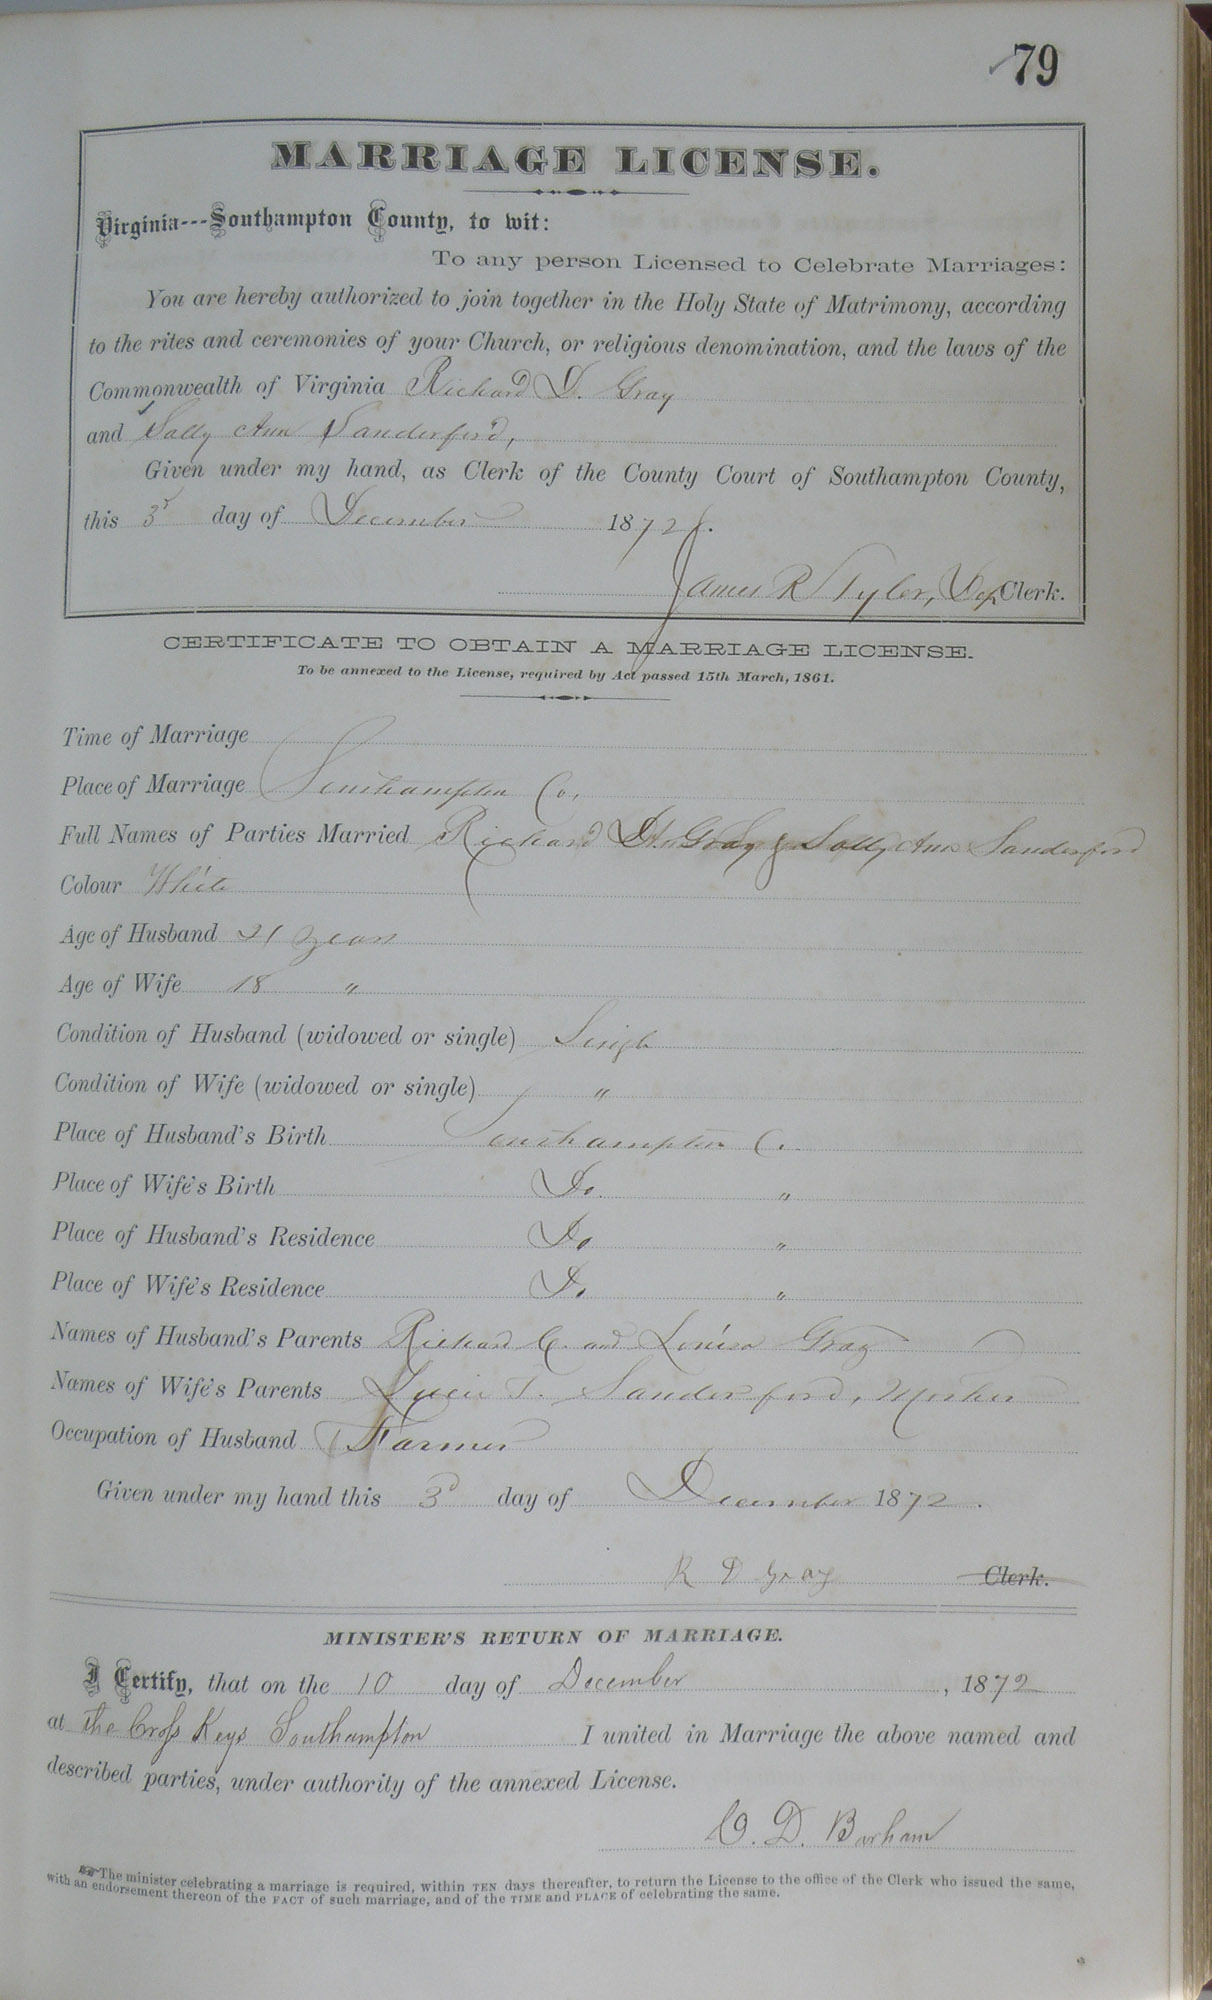 79
MARRIAGE LICENSE.
Virginia---Southampton County, to wit:
To any person Licensed to Celebrate Marriages:
You are hereby authorized to join together in the Holy State of Matrimony, according
to the rites and ceremonies of your Church, or religious denomination, and the laws of the
Commonwealth of Virginia Richard D. Gray
and Sally Ann Sanderford,
Given under my hand, as Clerk of the County Court of Southampton County,
this 3d day of December 1872.
James R Tyler, Dep Clerk.
CERTIFICATE TO OBTAIN A MARRIAGE LICENSE.
To be annexed to the License, required by Act passed 15th March, 1861.
Time of Marriage
Place of Marriage Southampton Co.
Full Names of Parties Married Richard D. Gray & Sally Ann Sanderford
Colour White
Age of Husband 21 years
Age of Wife 18 "
Condition of Husband (widowed or single) Single
Condition of Wife (widowed or single) "
Place of Husband's Birth Southampton Co.
Place of Wife's Birth Do. "
Place of Husband's Residence Do "
Place of Wife's Residence Do "
Names of Husband's Parents Richard C. and Louisa Gray
Names of Wife's Parents Lucie T. Sanderford, Mother
Occupation of Husband Farmer
Given under my hand this 3d day of December 1872.
R D Gray Clerk.
MINISTER'S RETURN OF MARRIAGE.
I Certify, that on the 10 day of December, 1872
at the Cross Keys Southampton I united in Marriage the above named and
described parties, under authority of the annexed License.
O. D. Barham
The minister celebrating a marriage is required, within TEN days thereafter, to return the License to the office of the Clerk who issued the same,
with an endorsement thereon of the FACT of such marriage, and of the TIME and PLACE of celebrating the same.